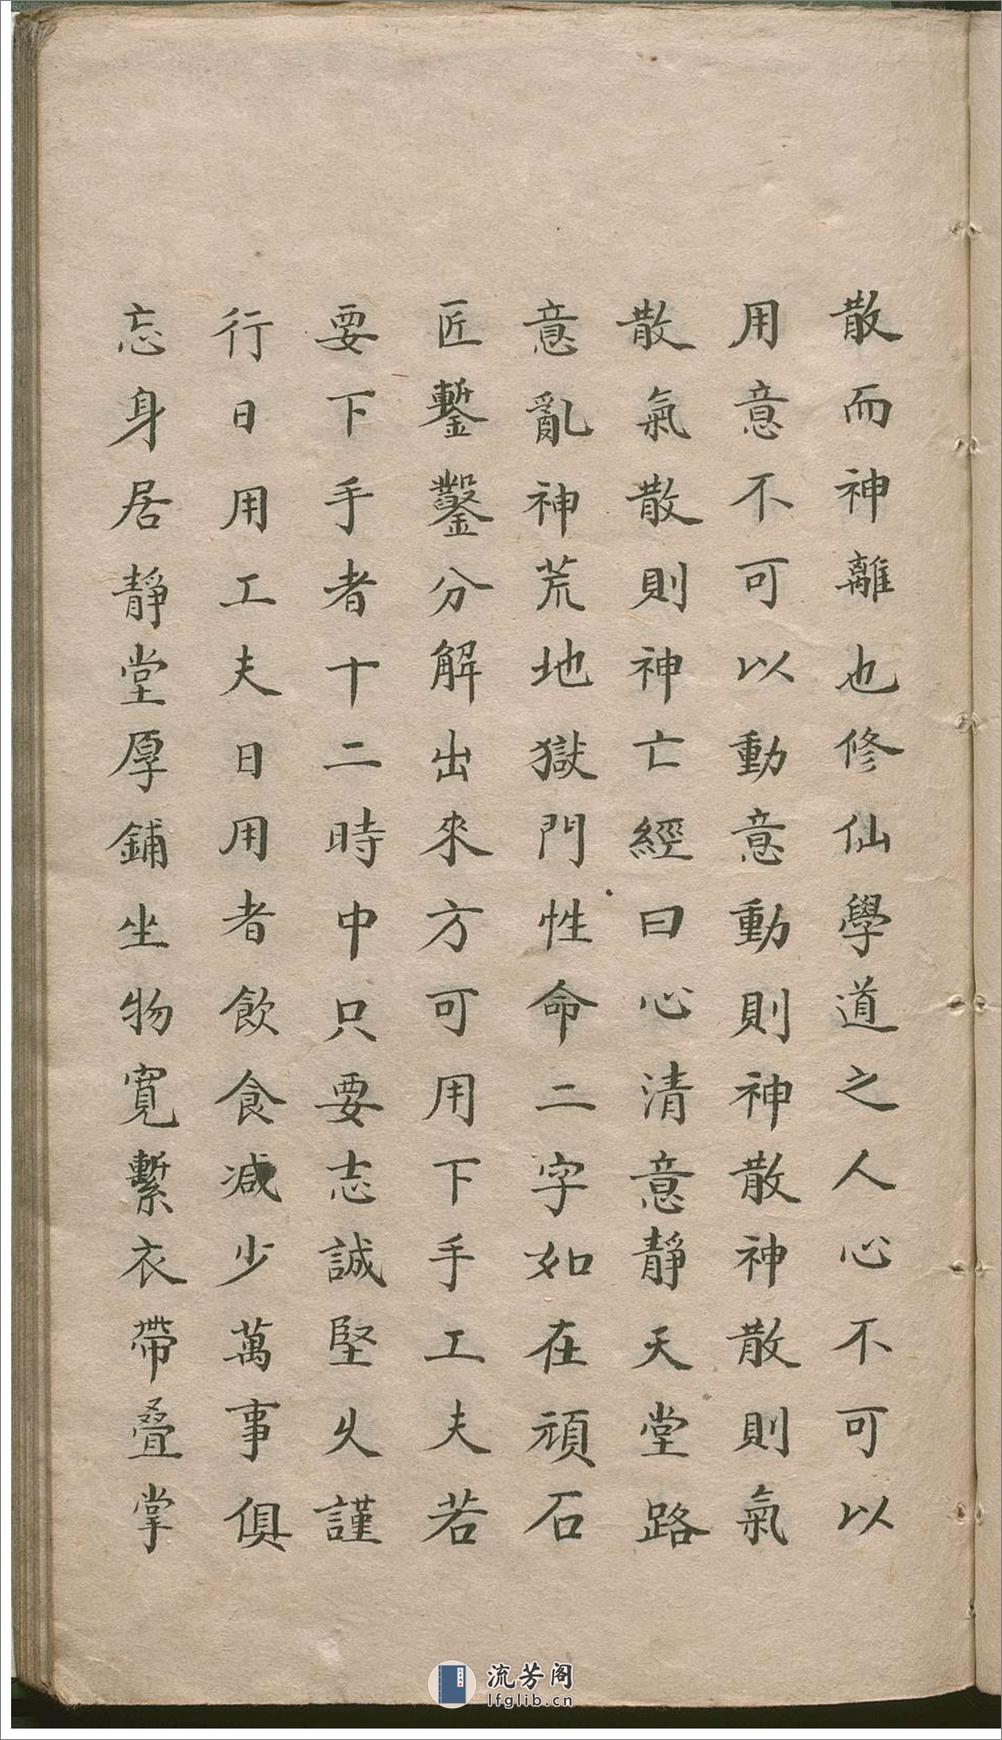 散而神離也修仙學道之人心不可以
用意不可以動意動則神散神散則氣
散氣散則神亡經曰心清意靜天堂路
意亂神荒地獄門性命二字如在頑石
匠鏨鑿分解出來方可用下手工夫若
要下手者十二時中只要志誠堅久謹
行日用工夫日用者飲食減少萬事俱
忘身居靜堂厚鋪坐物寬繫衣帶疊掌
流芳阁
lfglib.cn